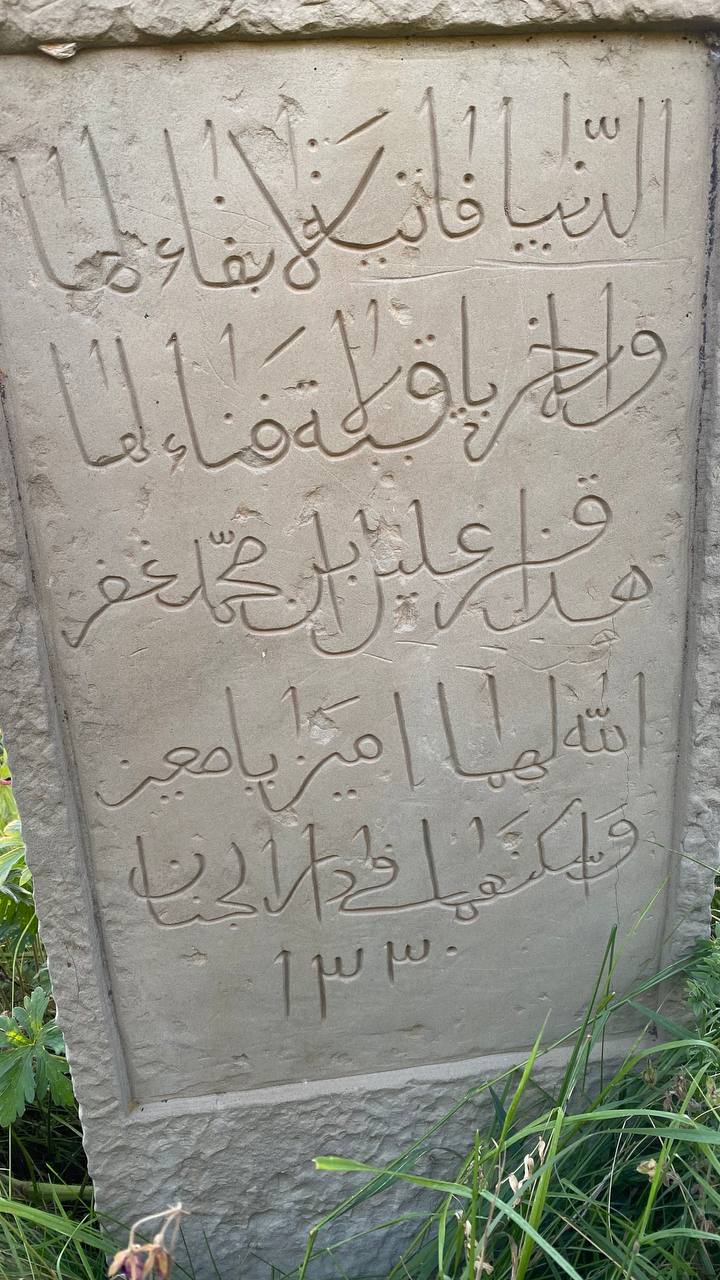 الدّنيا فانية لا بقاء لها
والاخر باقية لا فناء لها
هذا قبر علي بن محمّد غفر
الله لهما امين يا معين
وسكنهما في دار الجنان
١٣٣٠